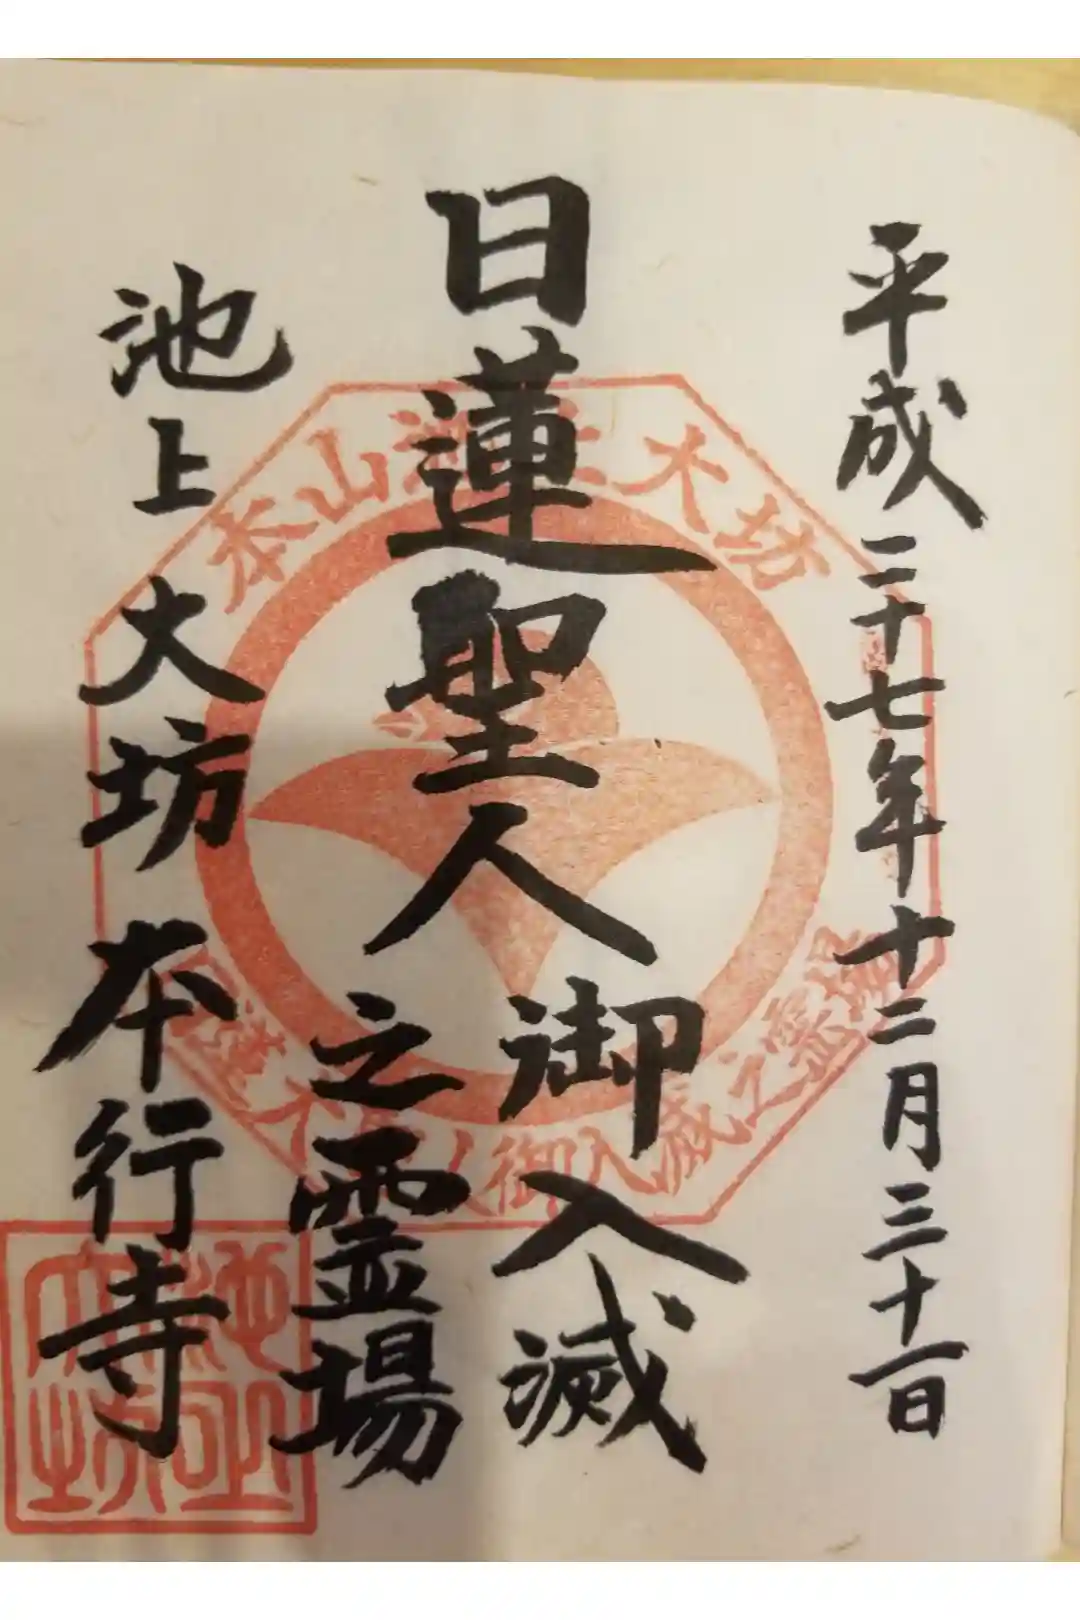 平成二十七年十二月三十一日
日蓮聖人御入滅
之霊場
池上大坊本行寺
本山
大坊
御入滅之霊場
池上
大坊